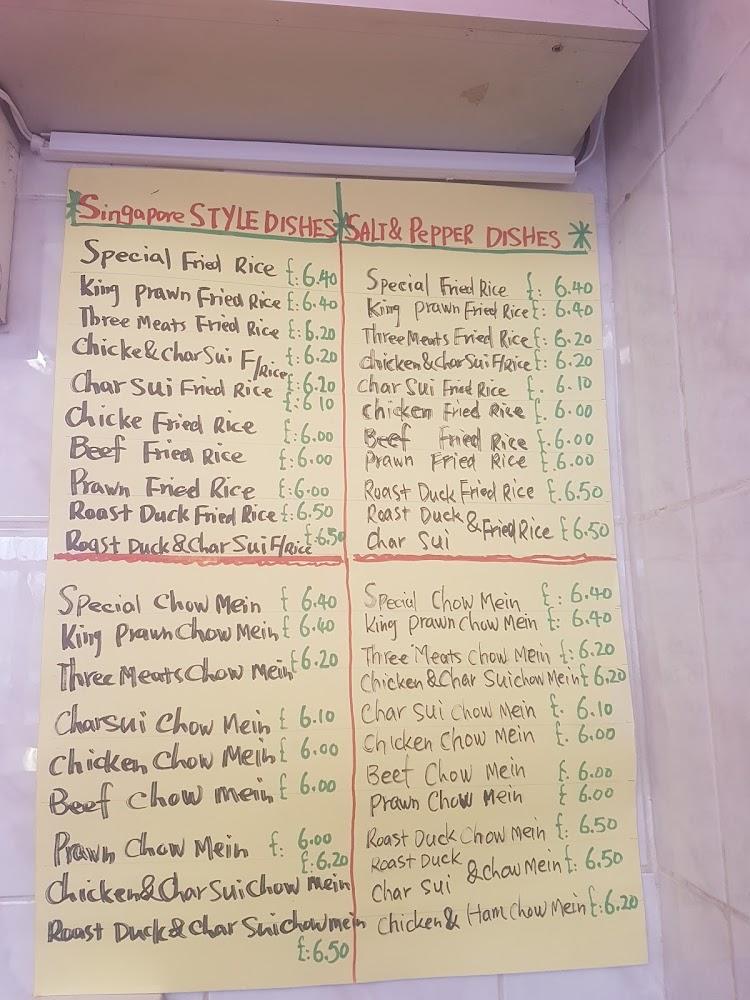 *Singapore STYLE DISHES*
Special Fried Rice £:6.40
King Prawn Fried Rice £:6.40
Three Meats Fried Rice £:6.20
Chicke&Char Sui F/Rice £:6.20
Char Sui Fried Rice £:6.20
£:6 10
Chicke Fried Rice £:6.00
Beef Fried Rice £:6.00
Prawn Fried Rice £:6.00
Roast Duck Fried Rice £:6.50
Roast Duck & Char Sui F/Rice £:6.50
Special Chow Mein £ 6.40
King Prawn Chow Mein £ 6.40
Three Meats Chow Mein £6.20
Char sui Chow Mein £ 6.10
Chicken Chow Mein £ 6.00
Beef Chow mein £ 6.00
Prawn Chow Mein £: 6.00
£:6.20
Chicken&Char Sui Chow mein
Roast Duck & Char Sui chow mein
£:6.50
SALT & PePPER DISHES *
Special Fried Rice £: 6.40
King Prawn Fried Rice £: 6.40
Three Meats Fried Rice £: 6.20
chicken & Char Sui F/Rice £: 6.20
Char Sui Fried Rice £. 6.10
Chicken Fried Rice £. 6.00
Beef Fried Rice £.6.00
Prawn Fried Rice £.6.00
Roast Duck Fried Rice £.6.50
Roast Duck
Char Sui & Fried Rice £6.50
Special Chow Mein £: 6.40
King Prawn Chow Mein £: 6.40
Three Meats Chow Mein £:6.20
Chicken & Char Sui chow Mein £ 6.20
Char Sui Chow Mein £. 6.10
Chicken Chow Mein £. 6.00
Beef Chow Mein £. 6.00
Prawn Chow Mein £ 6.00
Roast Duck Chow Mein £: 6.50
Roast Duck
Char Sui & Chow Mein £: 6.50
Chicken & Ham Chow Mein £:6.20